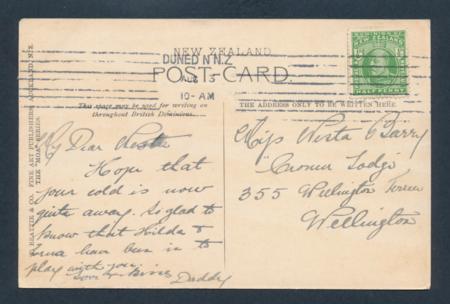 NEW ZEALAND
DUNEDIN N.Z.
AUG 5
10-AM
POST-CARD.
This space may be used for writing on
throughout British Dominions.
THE ADDRESS ONLY TO BE WRITTEN HERE.
HALF PENNY
FINE ART PUBLISHERS, AUCKLAND, N.Z.
THE "MOA" SERIES
My Dear
Hope that
your cold is now
quite away. So glad to
know that Hilda &
have been in to
play with you.
Love &
Daddy
Miss
Lodge
355 Wellington Terrace
Wellington